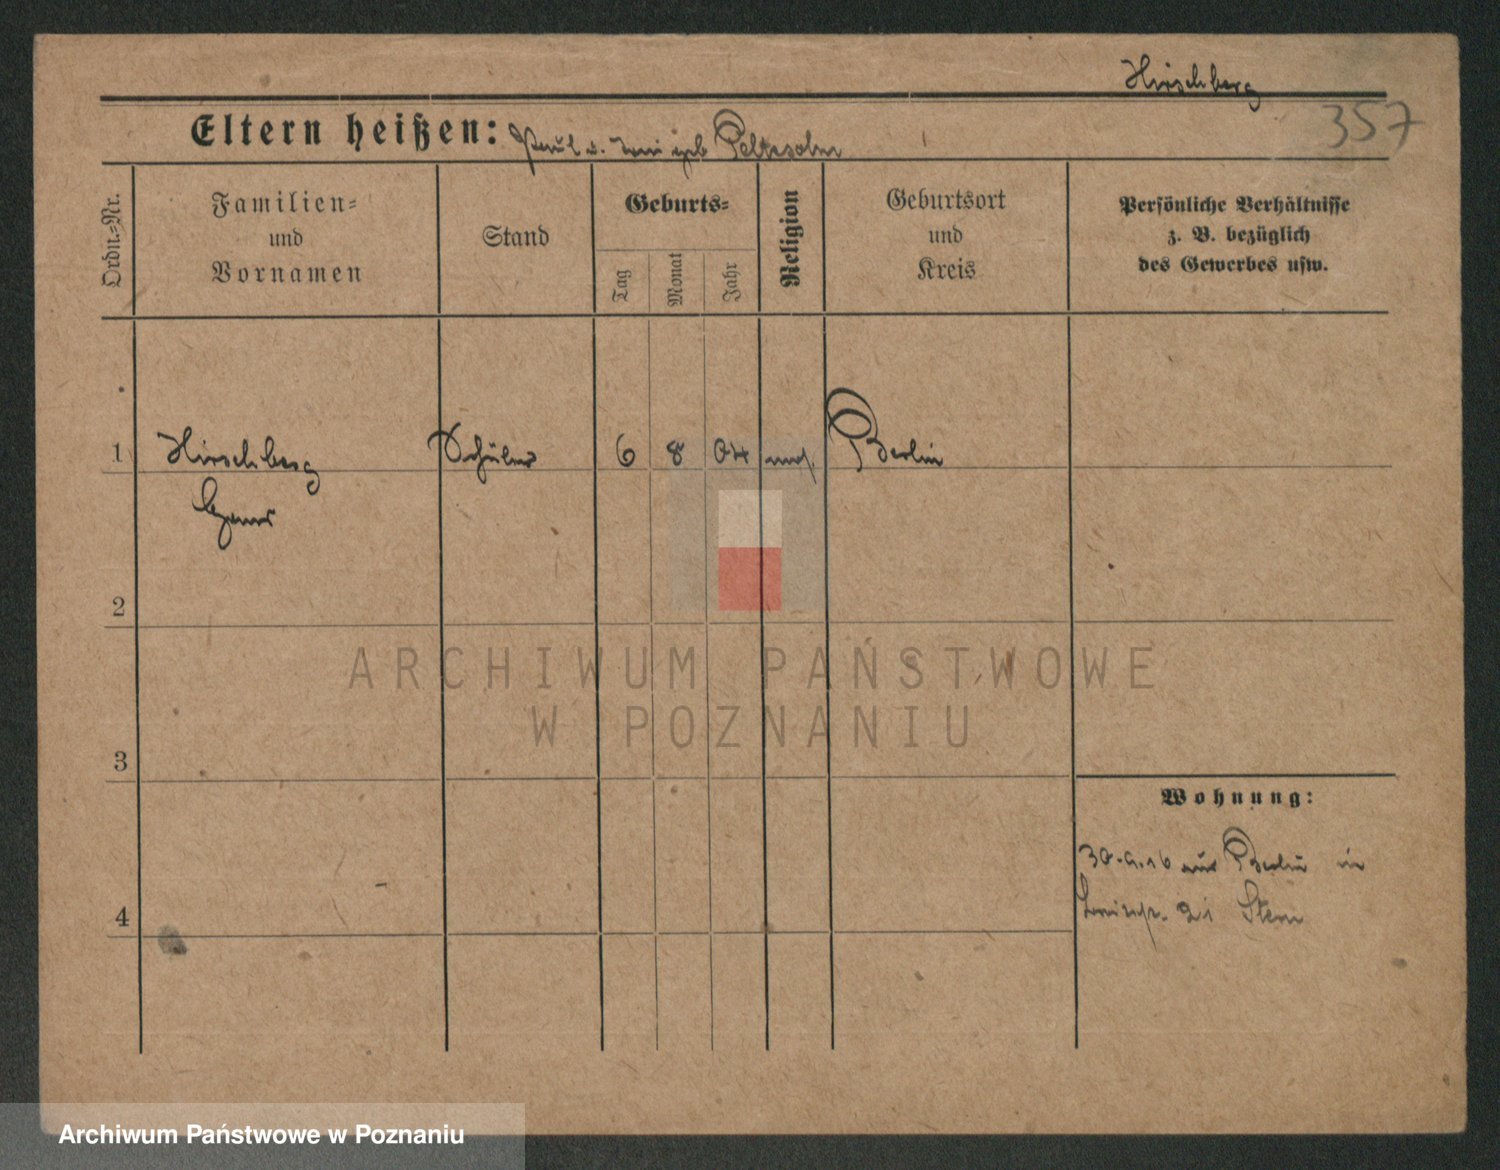 Hirschberg
357
Eltern heißen: Paul u. geb Peltesohn
Ordn.-Nr.
Familien-
und
Vornamen
Stand
Geburts-
Tag
Monat
Jahr
Religion
Geburtsort
und
Kreis
Persönliche Verhältnisse
z. B. bezüglich
des Gewerbes usw.
1 Hirschberg Schüler 6 8 04 mos. Berlin
2
3
4
Wohnung:
30.9.16 aus Berlin in
21 Stern
ARCHIWUM PAŃSTWOWE
W POZNANIU
Archiwum Państwowe w Poznaniu